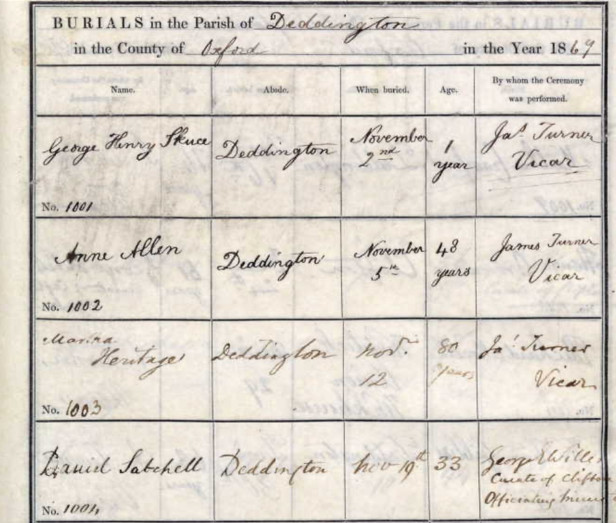 BURIALS in the Parish of Deddington
in the County of Oxford in the Year 1869
Name. Abode. When buried. Age. By whom the Ceremony was performed.
George Henry Skuce Deddington November 2nd 1 year Jas. Turner Vicar
No. 1001
Anne Allen Deddington November 5th 48 years James Turner Vicar
No. 1002
Heritage Deddington Novr. 12 80 years Jas. Turner Vicar
No. 1003
Daniel Satchell Deddington Nov 19th 33 Curate of Clifton
Officiating
No. 1004